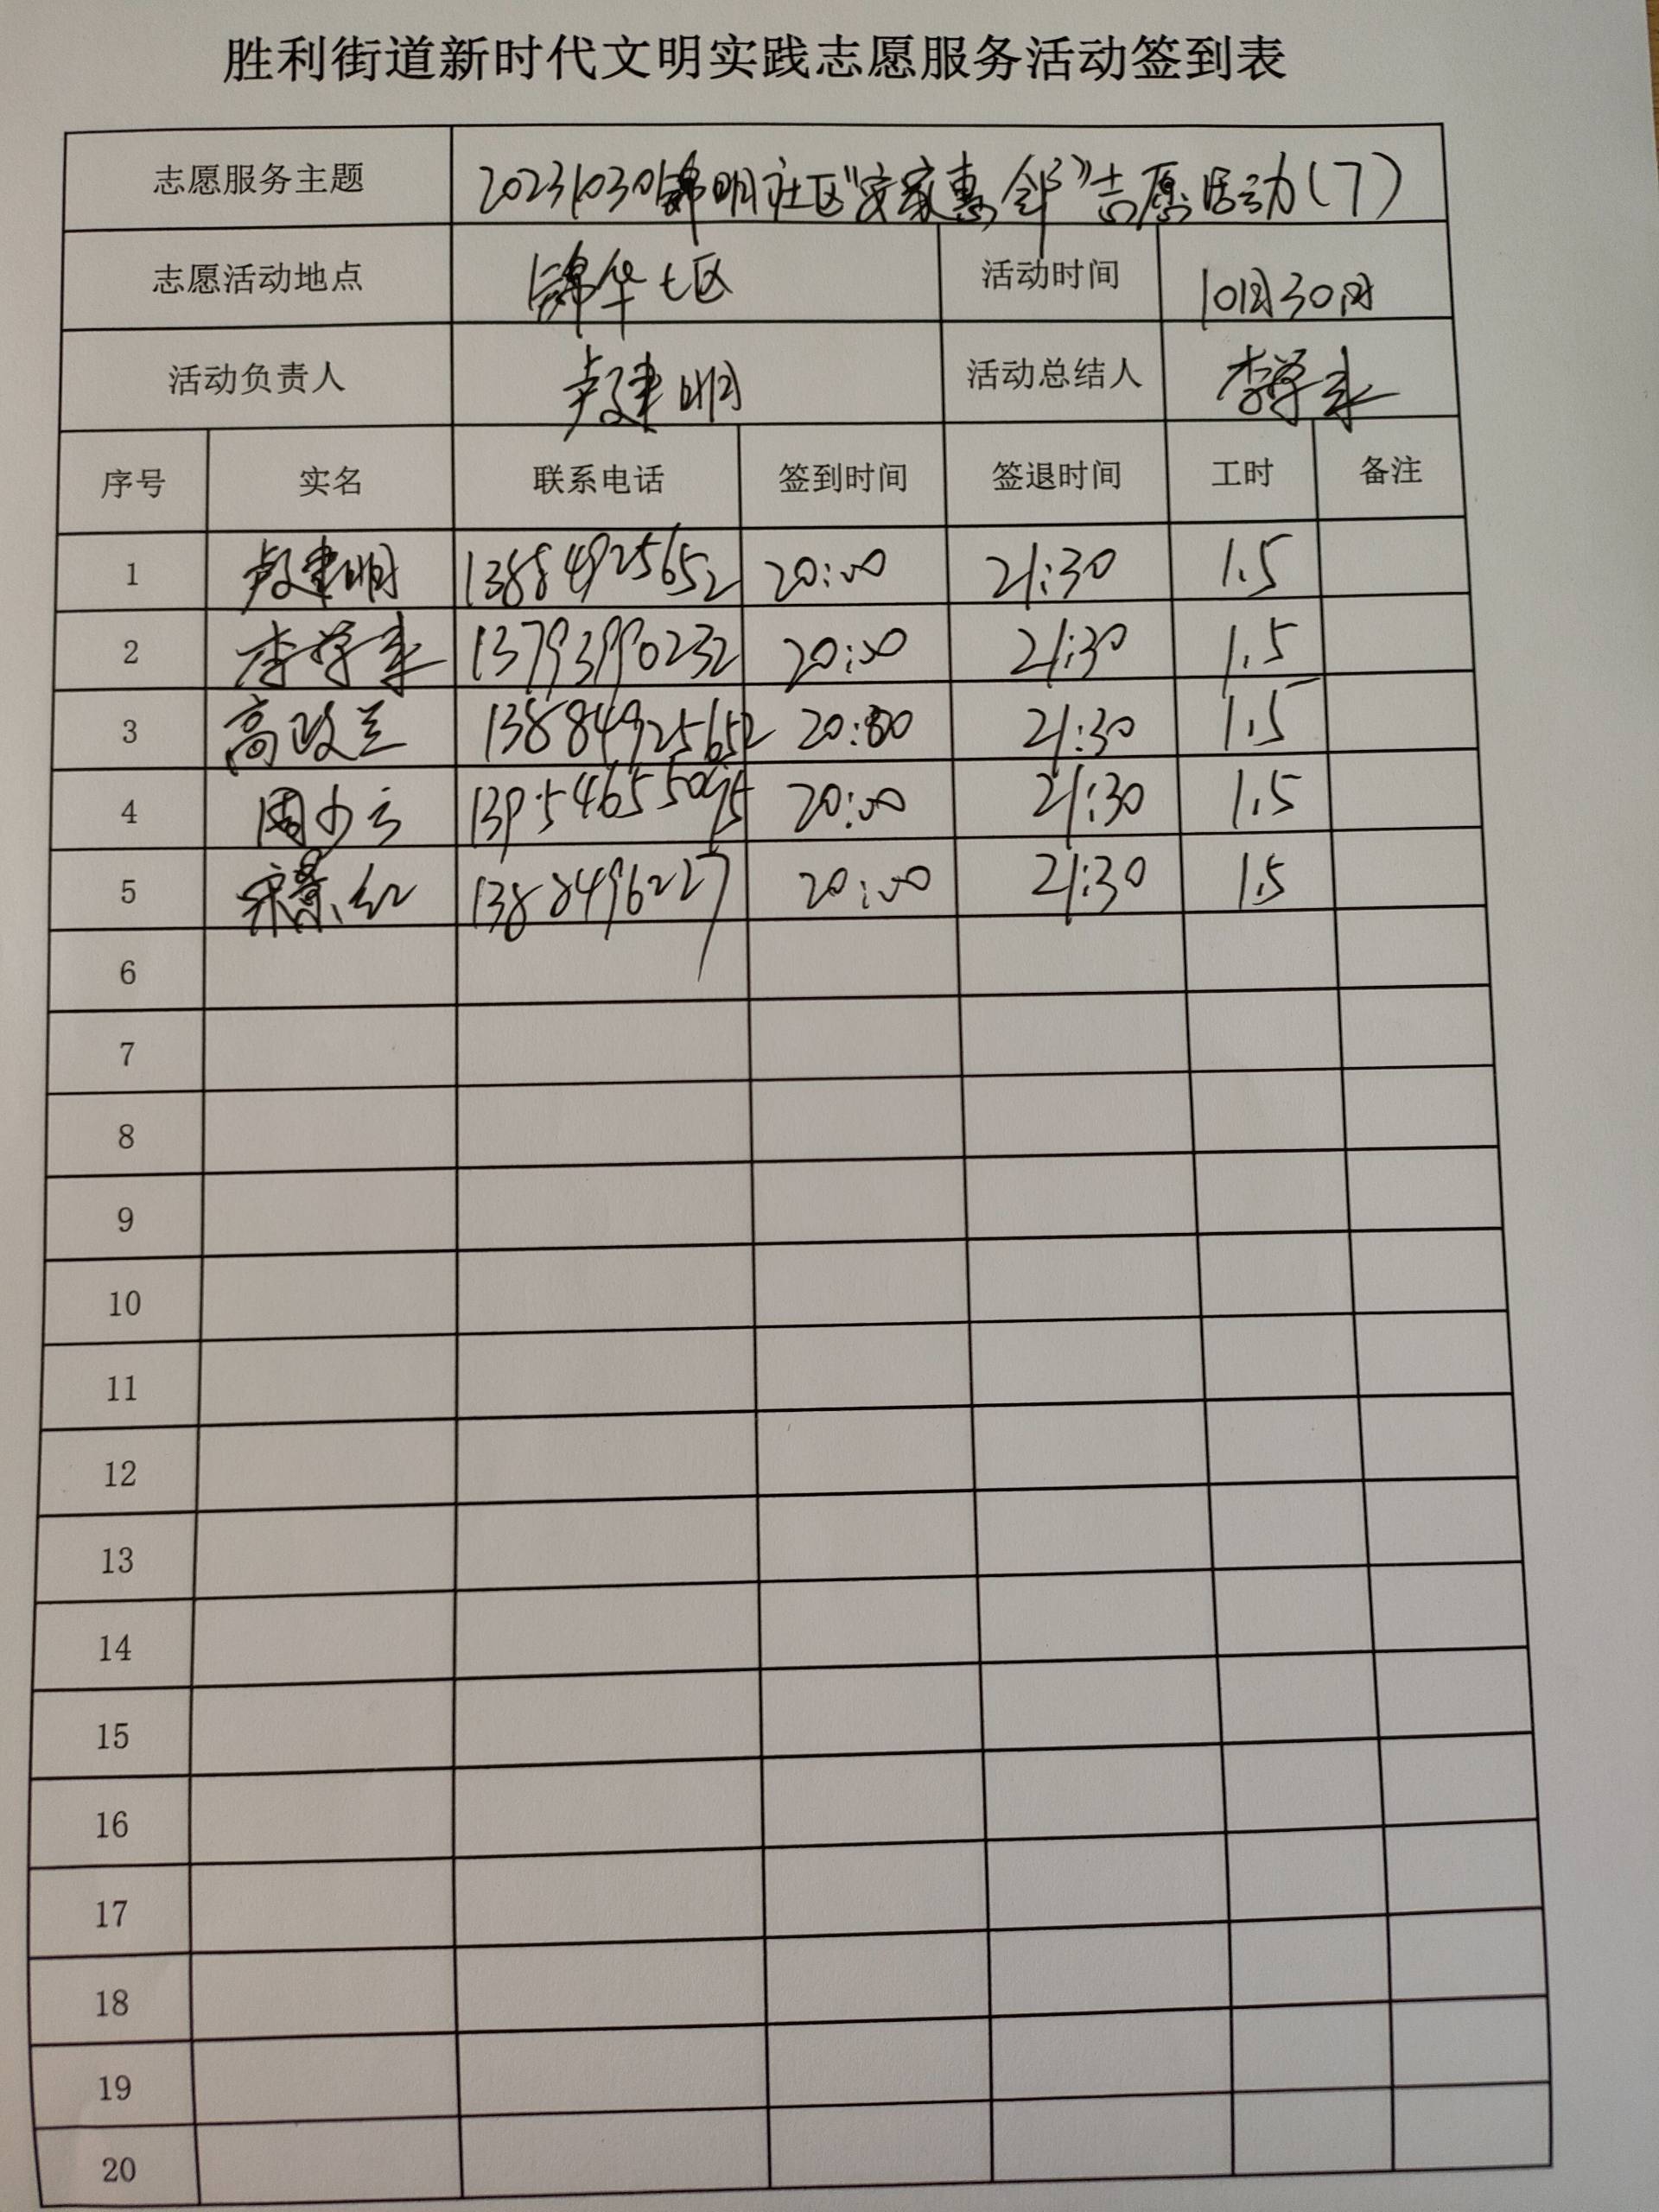 胜利街道新时代文明实践志愿服务活动签到表
志愿服务主题 20231030锦明社区“安家惠邻”志愿活动(7)
志愿活动地点 锦华七区 活动时间 10月30日
活动负责人 卢建明 活动总结人 李学来
序号 实名 联系电话 签到时间 签退时间 工时 备注
1 卢建明 13884925652 20:00 21:30 1.5
2 李学来 13793990232 20:00 21:30 1.5
3 高政兰 13884925652 20:00 21:30 1.5
4 周少云 20:00 21:30 1.5
5 宋景红 1388496227 20:00 21:30 1.5
6
7
8
9
10
11
12
13
14
15
16
17
18
19
20